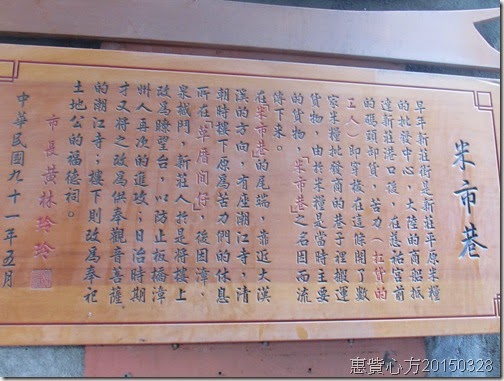 米市巷
早年新莊街是新莊平原米糧
的批發中心，大陸的商船抵
達新莊港口後，在慈祐宮前
的碼頭卸貨，苦力（扛貨的
工人）即穿梭在這條開了數
家米糧批發商的巷子裡搬運
貨物，由於米糧是當時主要
的貨物，米市巷之名因而流
傳下來。
在米市巷的尾端，靠近大漢
溪的方向，有座潮江寺，清
朝時樓下原為苦力們的休息
所在草厝間仔，後因漳、
泉械鬥，新莊人於是將樓上
改為瞭望台，以防止板橋漳
州人再次的進攻；日治時期
才又將之改為供奉觀音菩薩
的潮江寺；樓下則改為奉祀
土地公的福德祠。
市長黃林玲玲
中華民國九十一年五月
惠貲心方20150328